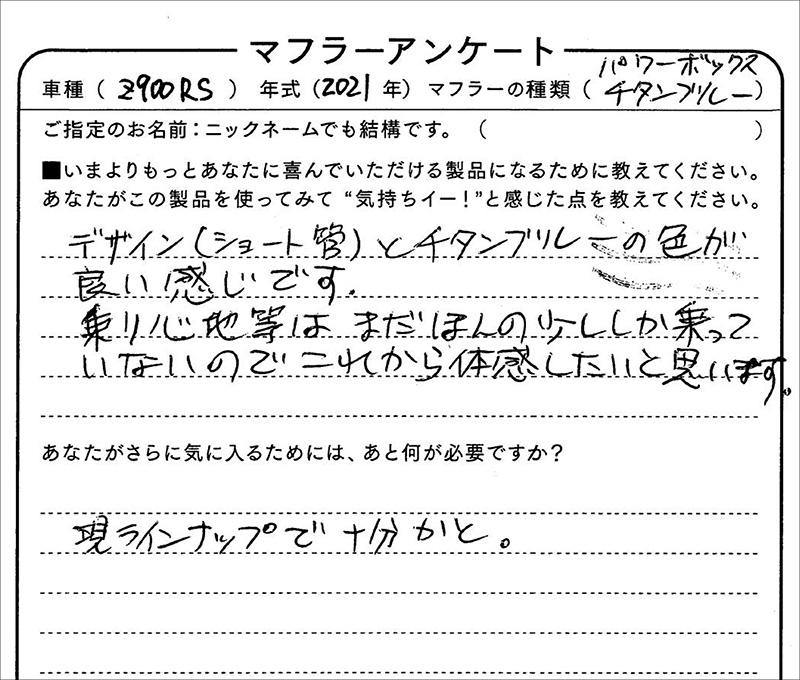 マフラーアンケート
車種（ Z900RS ） 年式（2021 年） マフラーの種類（ パワーボックス
チタンブルレー ）
ご指定のお名前：ニックネームでも結構です。（ ）
■いまよりもっとあなたに喜んでいただける製品になるために教えてください。
あなたがこの製品を使ってみて “気持ちイー！”と感じた点を教えてください。
デザイン（ショート管）とチタンブルレーの色が
良い感じです.
乗り心地等は まだほんの少ししか乗って
いないので これから体感したいと思います。
あなたがさらに気に入るためには、あと何が必要ですか？
現ラインナップで十分かと。